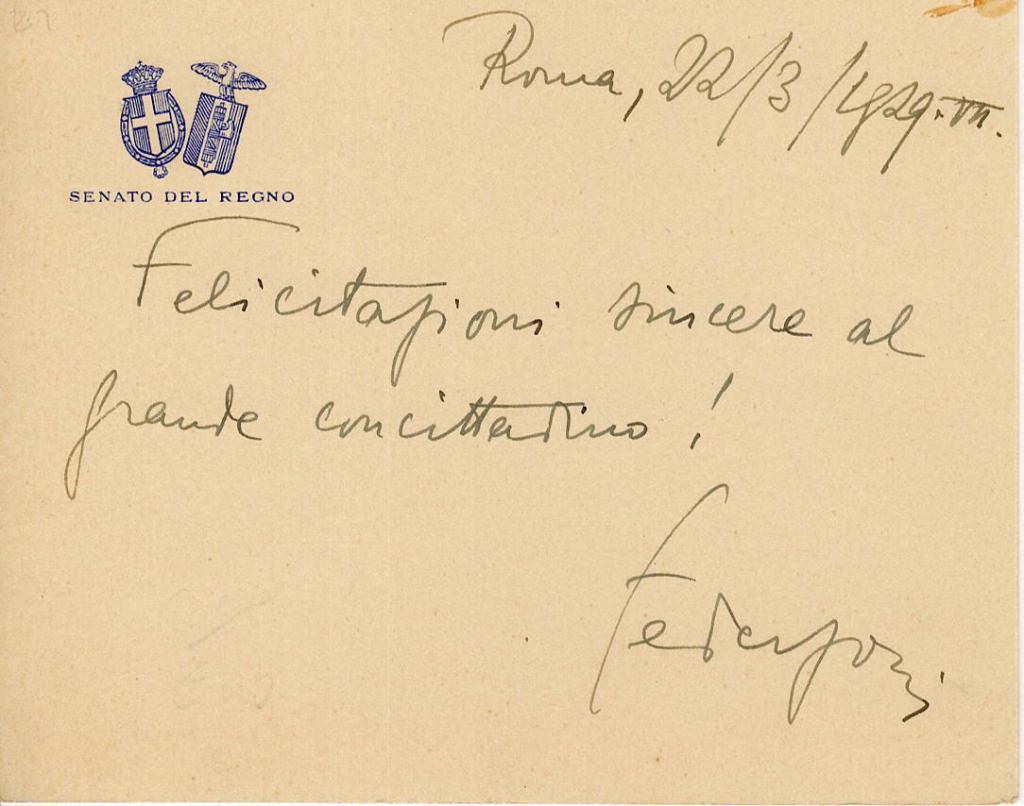 Roma, 22/3/1929.VII.
SENATO DEL REGNO
Felicitazioni sincere al
grande concittadino!
Federzoni